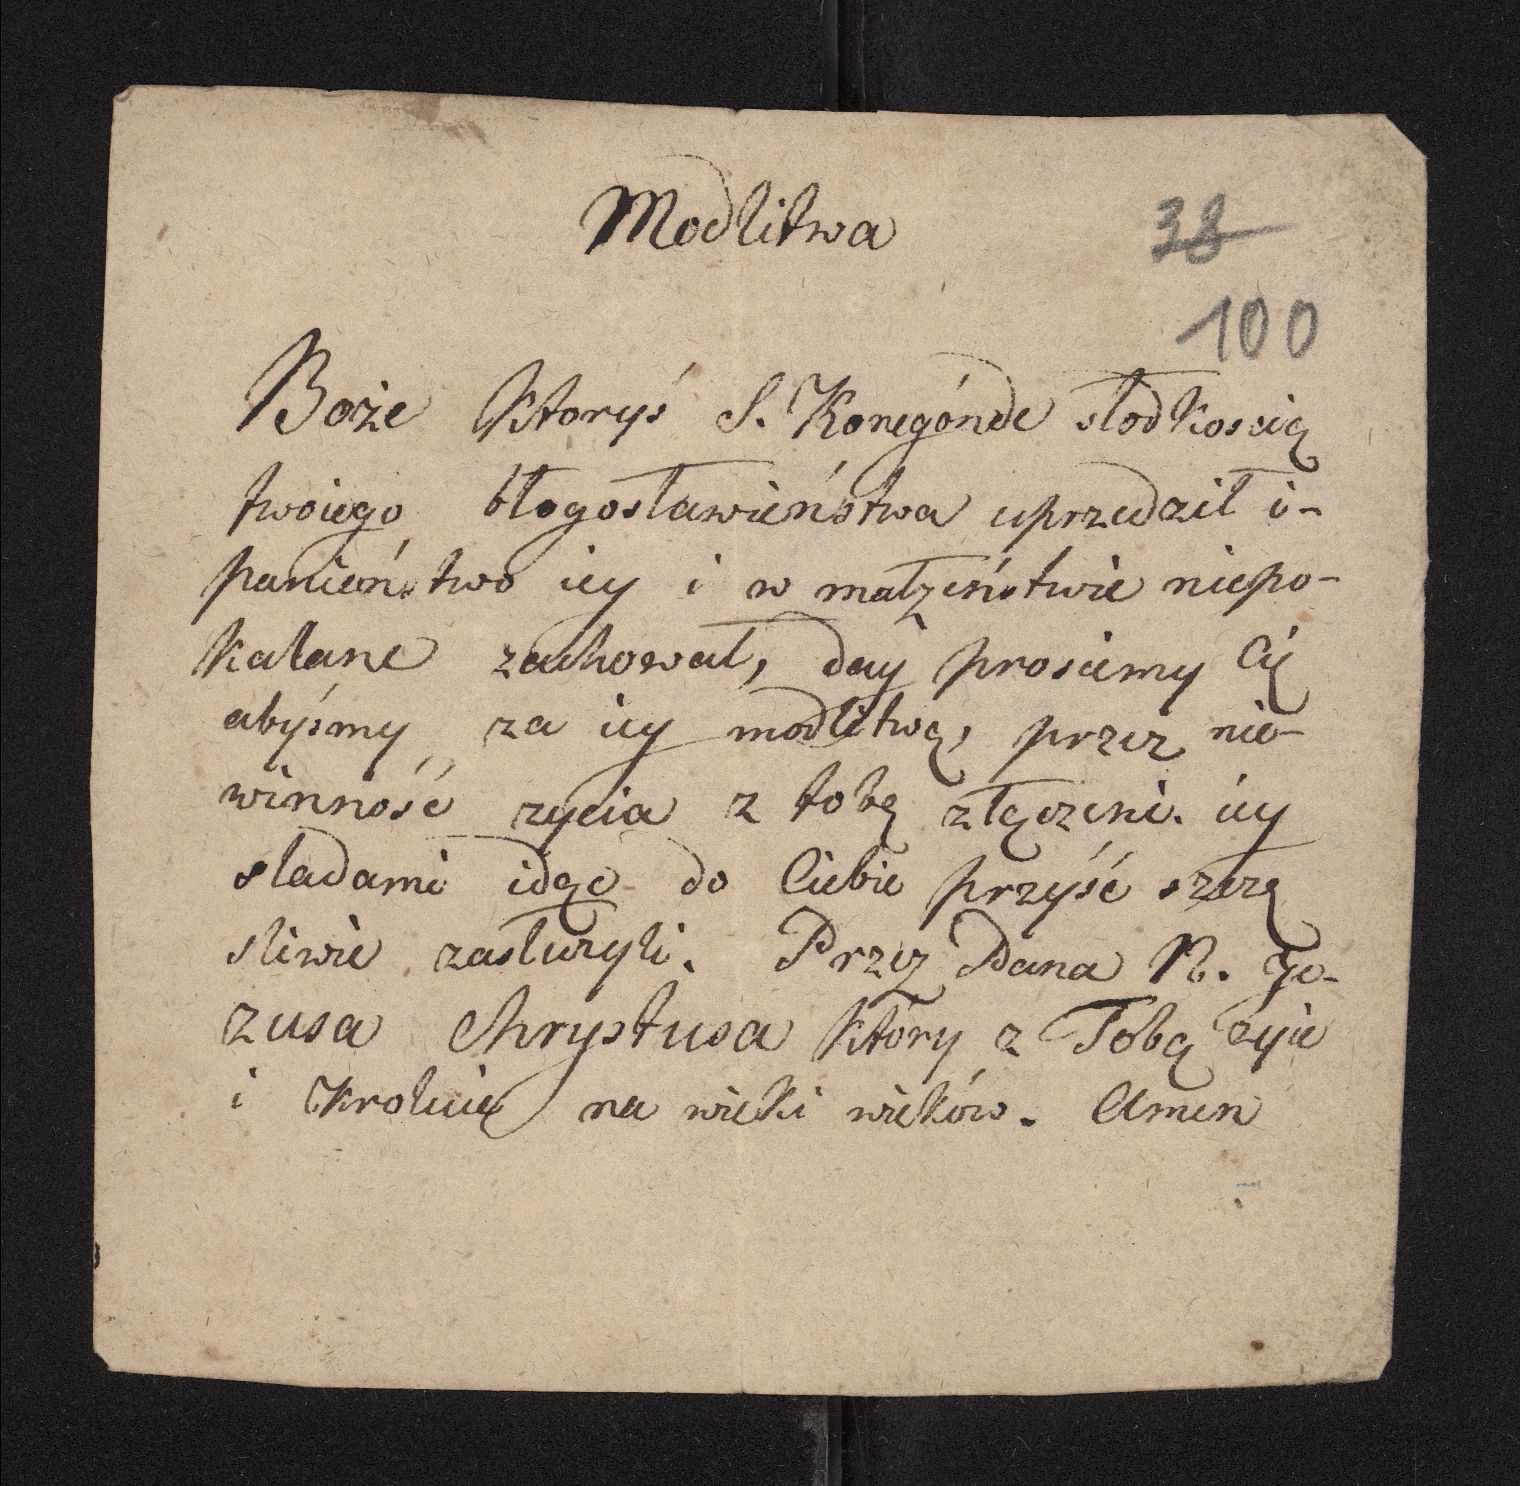 Modlitwa
38
100
Boże Ktoryś S. Konegónde słodkoscią
twoiego błogosławieństwa uprzedził i-
panieństwo iey i w małzeństwie niepo-
kalane zachował, day prosiemy Cię
abyśmy za iey modlitwą, przez nie-
winność zycia z tobą złączeni. iey
sladami idąc do Ciebie przyść szczę
sliwie zasłuzyli. Przez Pana N. Je-
zusa Chrystusa Który z Tobą zyie
i kroluie na wieki wieków. Amen